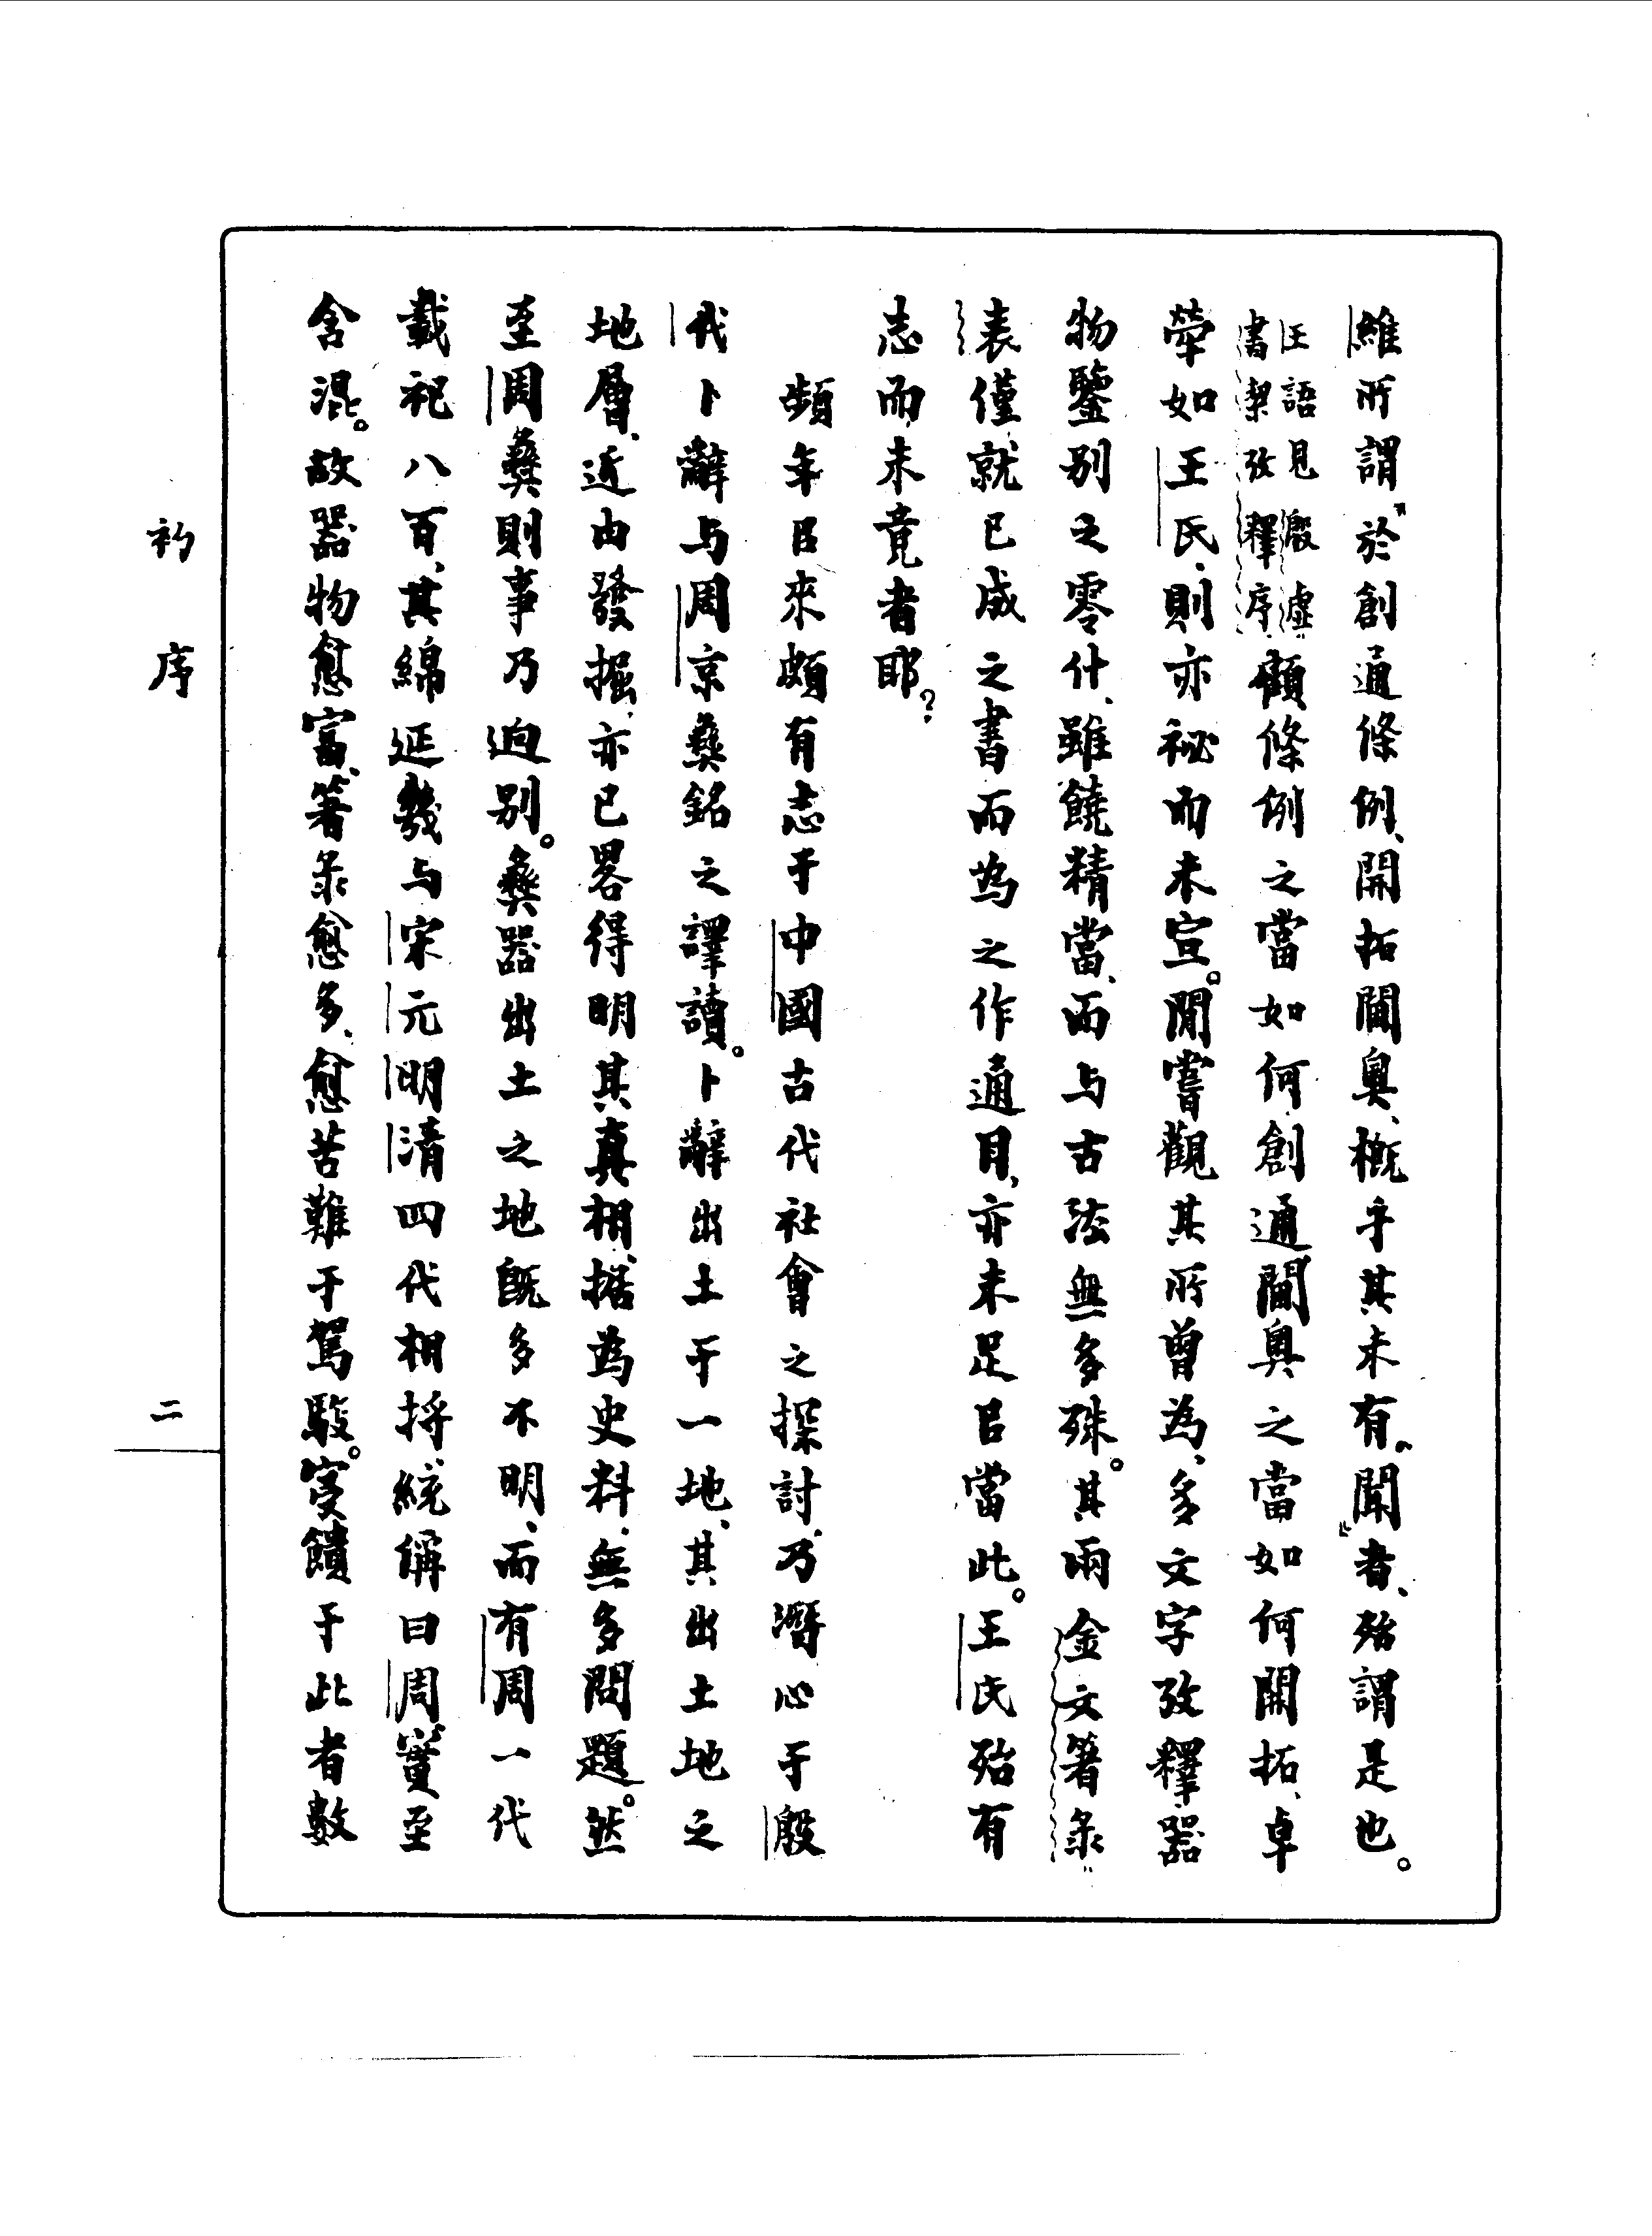 維所謂“於創通條例、開拓閫奧、概乎其未有”聞者、殆謂是也。
王語見殷虛
書契攷釋序
顧條例之當如何創通、閫奧之當如何開拓、卓
犖如王氏、則亦祕而未宣。閒嘗觀其所曾為、多文字攷釋、器
物鑒別之零什、雖饒精當、而与古法無多殊。其兩金文著彔
表僅就已成之書而為之作通目、亦未足㠯當此。王氏殆有
志而未竟者耶?
頻年㠯來頗有志于中國古代社會之探討、乃潛心于殷
代卜辭与周京彝銘之譯讀。卜辭出土于一地、其出土地之
地層、近由發掘、亦已畧得明其真相、据為史料、無多問題。然
至周彝則事乃迥別。彝器出土之地旣多不明、而有周一代
載祀八百、其綿延幾与宋元明清四代相捋、統稱曰周、實至
含混。故器物愈富、著彔愈多、愈苦難于駕馭。寖饋于此者數
初序
二